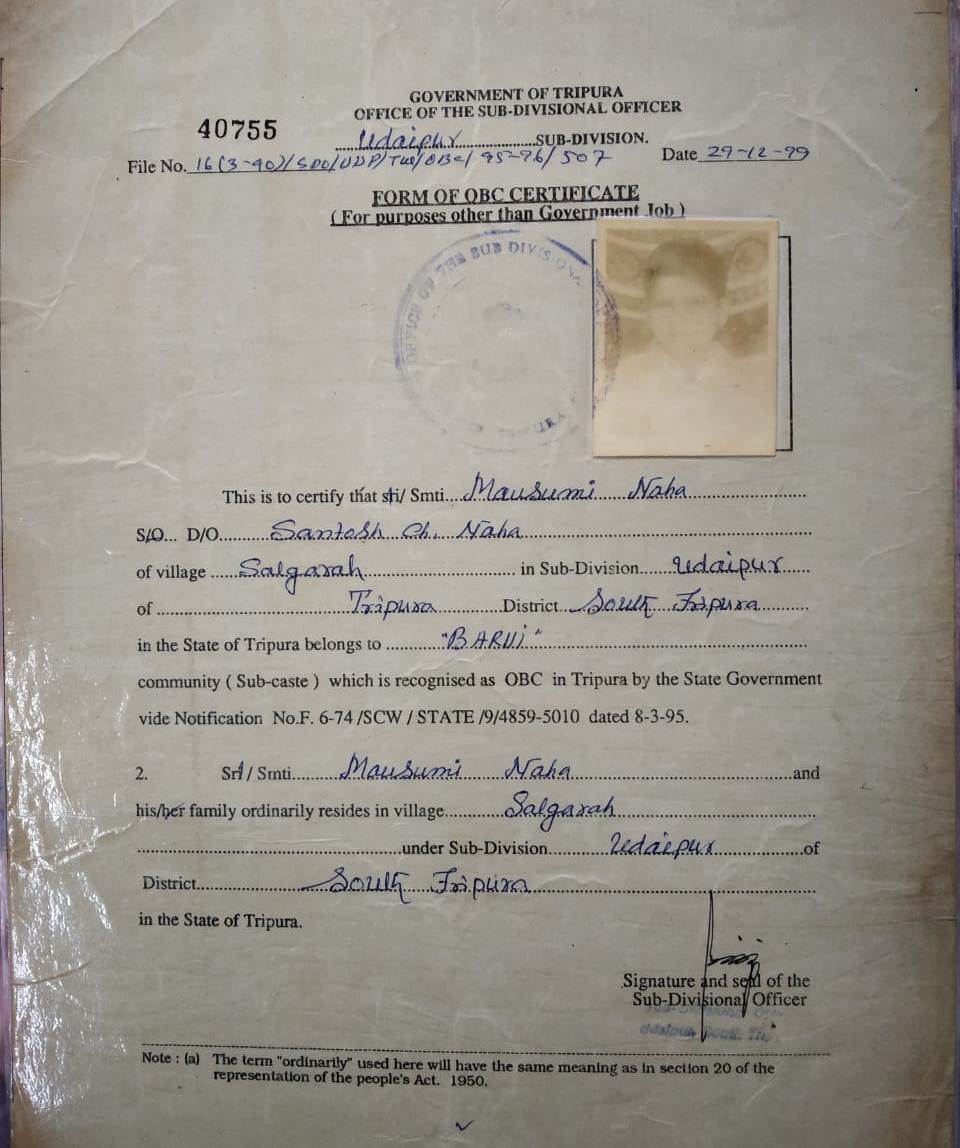 GOVERNMENT OF TRIPURA
OFFICE OF THE SUB-DIVISIONAL OFFICER
40755
Udaipur SUB-DIVISION.
File No. 16(3-40)/SDO/UDP/TW/OBC/95-96/507 Date 29-12-99
FORM OF OBC CERTIFICATE
( For purposes other than Government Job )
OFFICE OF THE SUB DIVISIONAL
This is to certify that sri/ Smti....Mausumi Naha
S/O... D/O.........Santosh Ch. Naha
of village .....Salgarah................................ in Sub-Division.....Udaipur......
of ................Tripura............District ..South Tripura
in the State of Tripura belongs to ............"BARUI"
community ( Sub-caste ) which is recognised as OBC in Tripura by the State Government
vide Notification No.F. 6-74 /SCW / STATE /9/4859-5010 dated 8-3-95.
2. Sri / Smti.........Mausumi Naha..............and
his/her family ordinarily resides in village...........Salgarah
.............................under Sub-Division.........Udaipur..........of
District...............South Tripura
in the State of Tripura.
Signature and seal of the
Sub-Divisional Officer
Sub-Divisional
Udaipur, South
Note : (a) The term "ordinarily" used here will have the same meaning as in section 20 of the
representation of the people's Act. 1950.